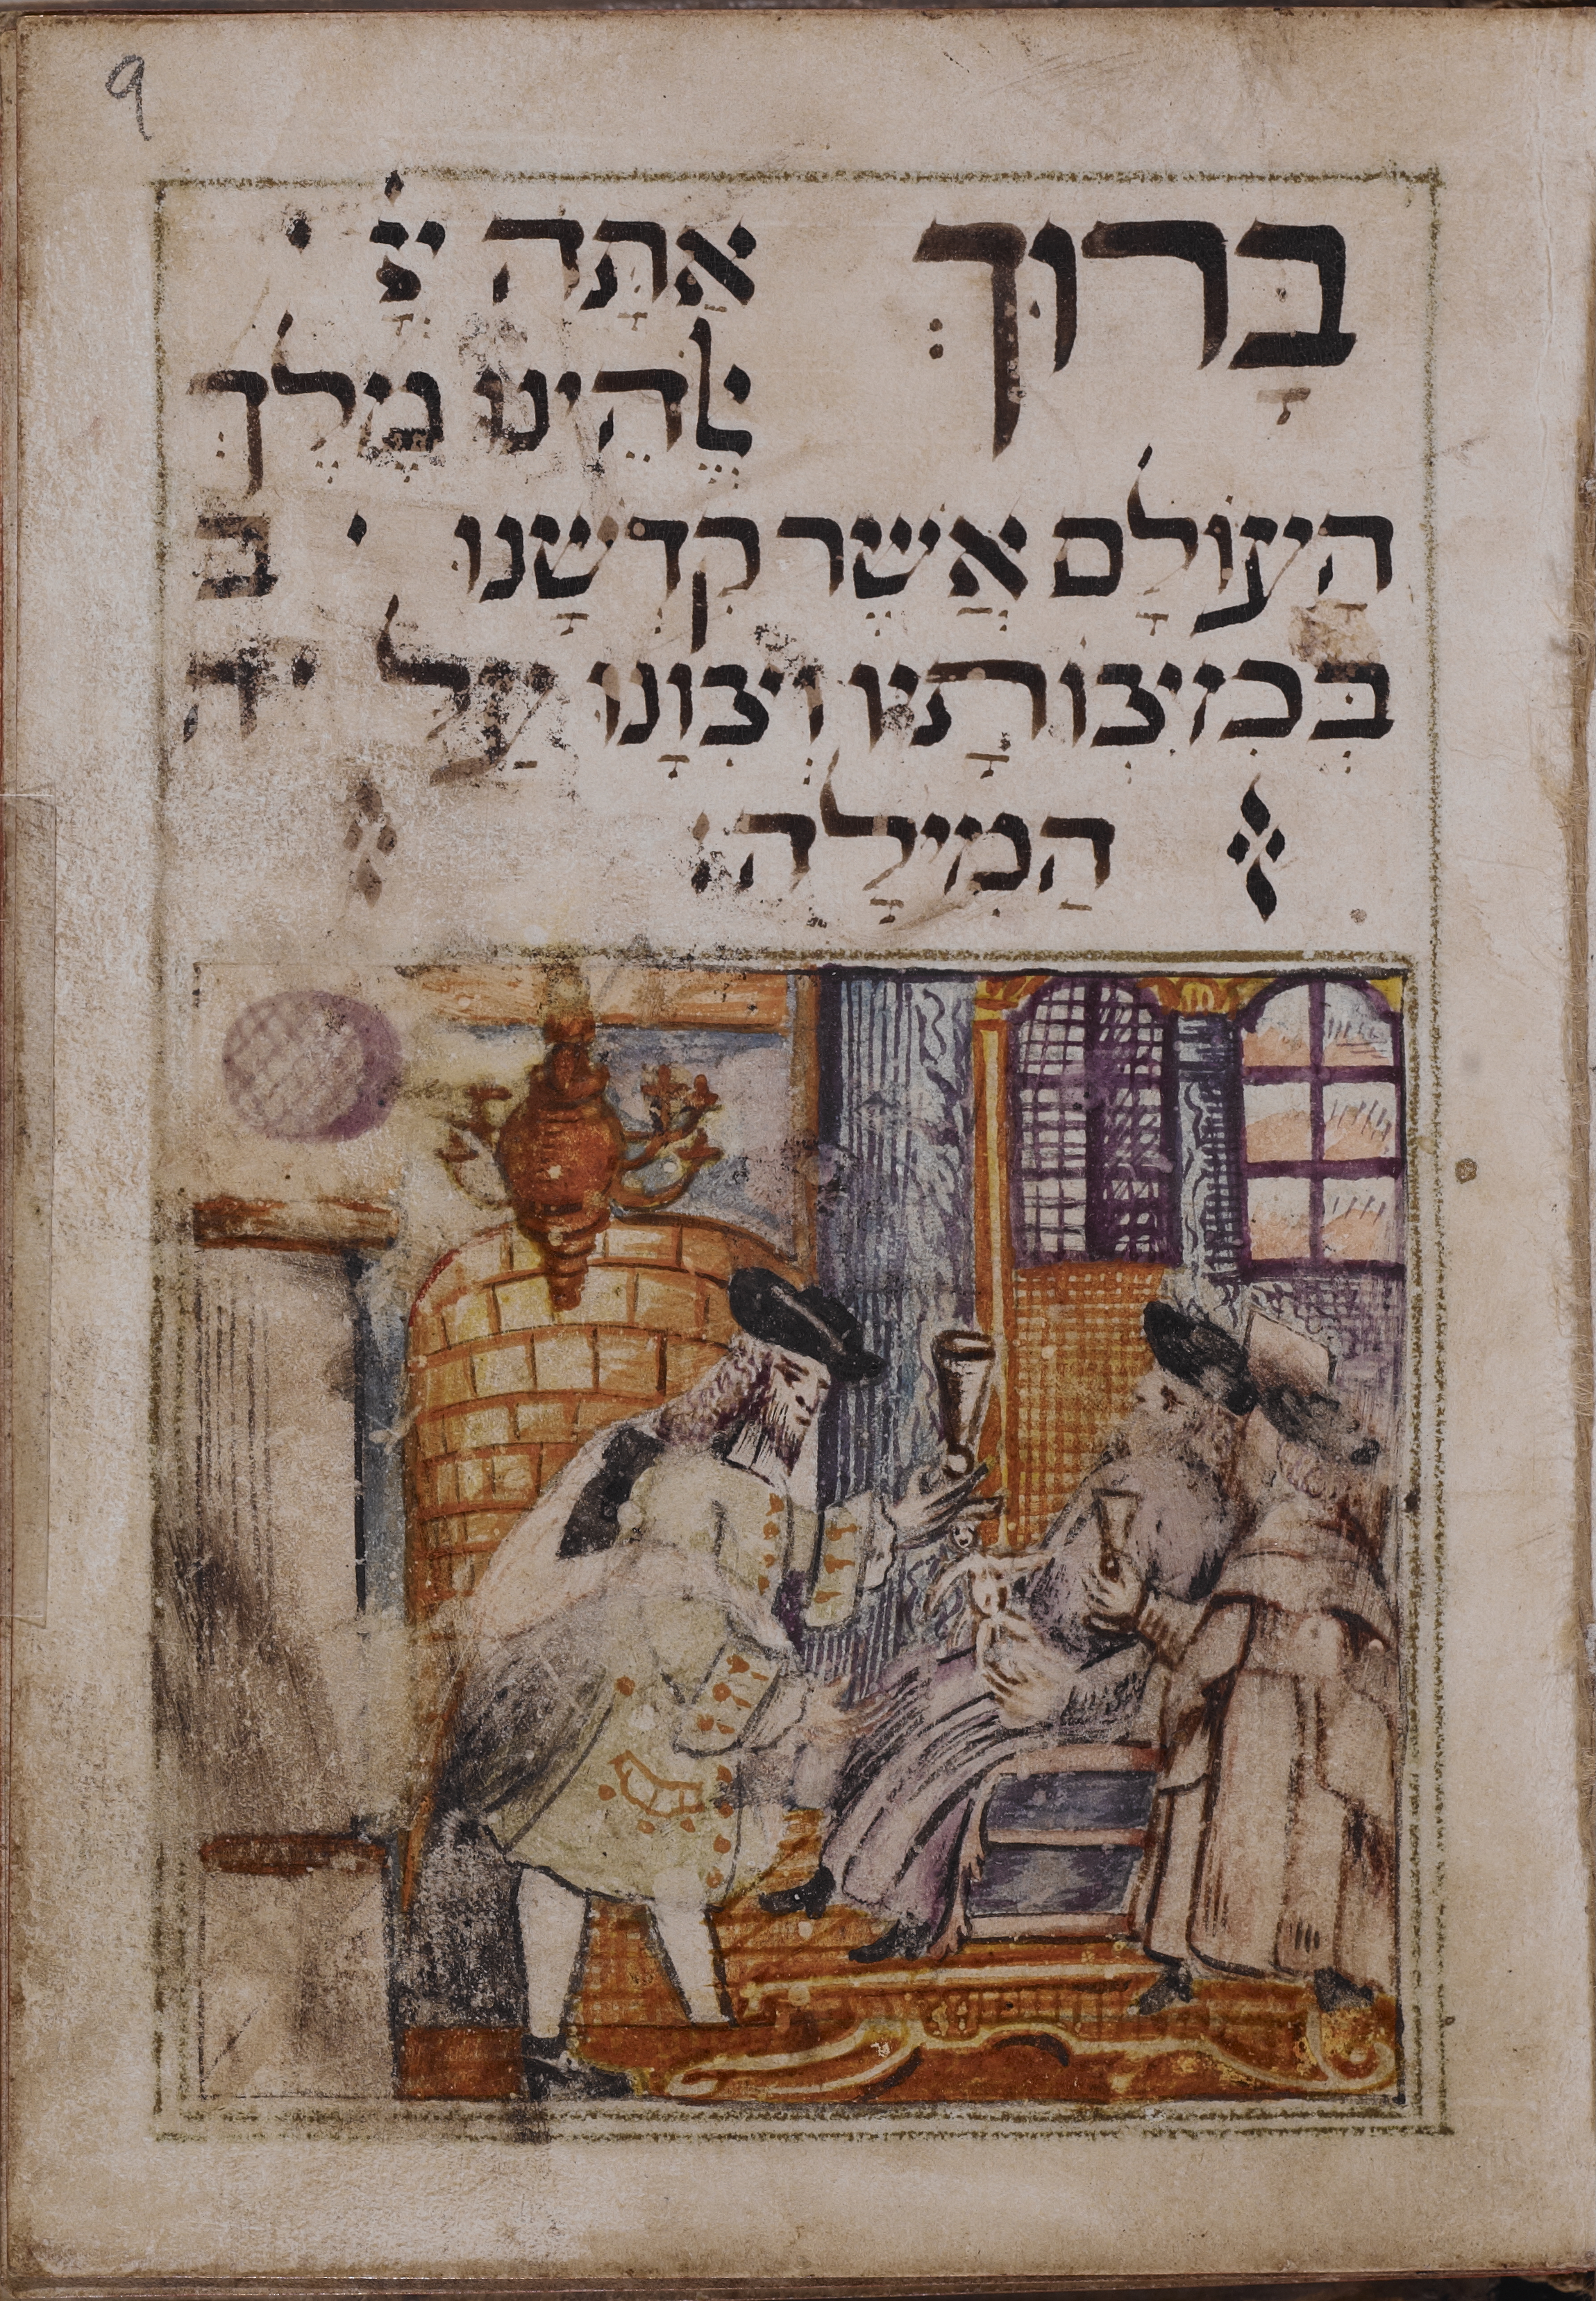 9
בָּרוּךְ אַתָּה יְיָ '
אֱלֹהֵינוּ מֶלֶךְ
הָעוֹלָם אֲשֶׁר קִדְשָׁנוּ ' ב
בְּמִיצְוֹתָיו וְצִוָנוּ עַל ' ה
הַמִילָה׃